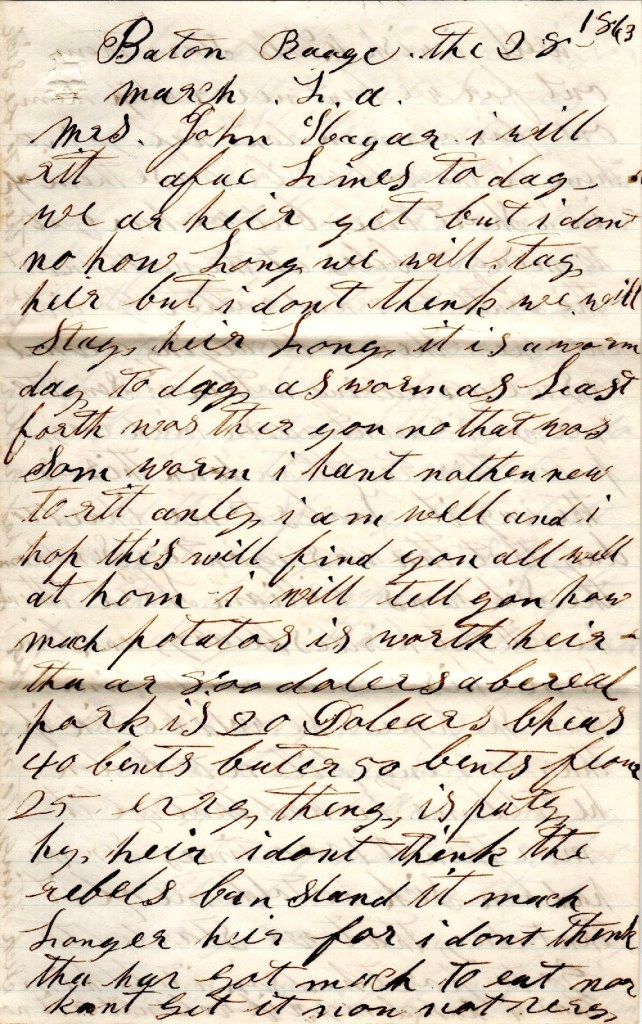 Baton Rouge. the 28 1863
march. L. a.
Mrs. John Hagar. i will
rit a fue Lines to day
we ar heir yet but i dont
no how Long we will. tay
heir but i dont thenk we will
Stay, heir Long, it is a worm
day to day as worm as Last
forth was ther you no that was
Som worm i hant nothen new
to rit only, i am well and i
hop this will find you all well
at hom i will tell you how
much potatos is worth heir
tha ar 8.00 dolers a berel
pork is 20 Dolears Cheas
40 Cents buter 50 Cents flour
25 every, theng, is puty
hy, heir i dont thenk the
rebels Can Stand it much
Longer heir for i dont thenk
tha hav got much to eat nor
kant get it now not very,